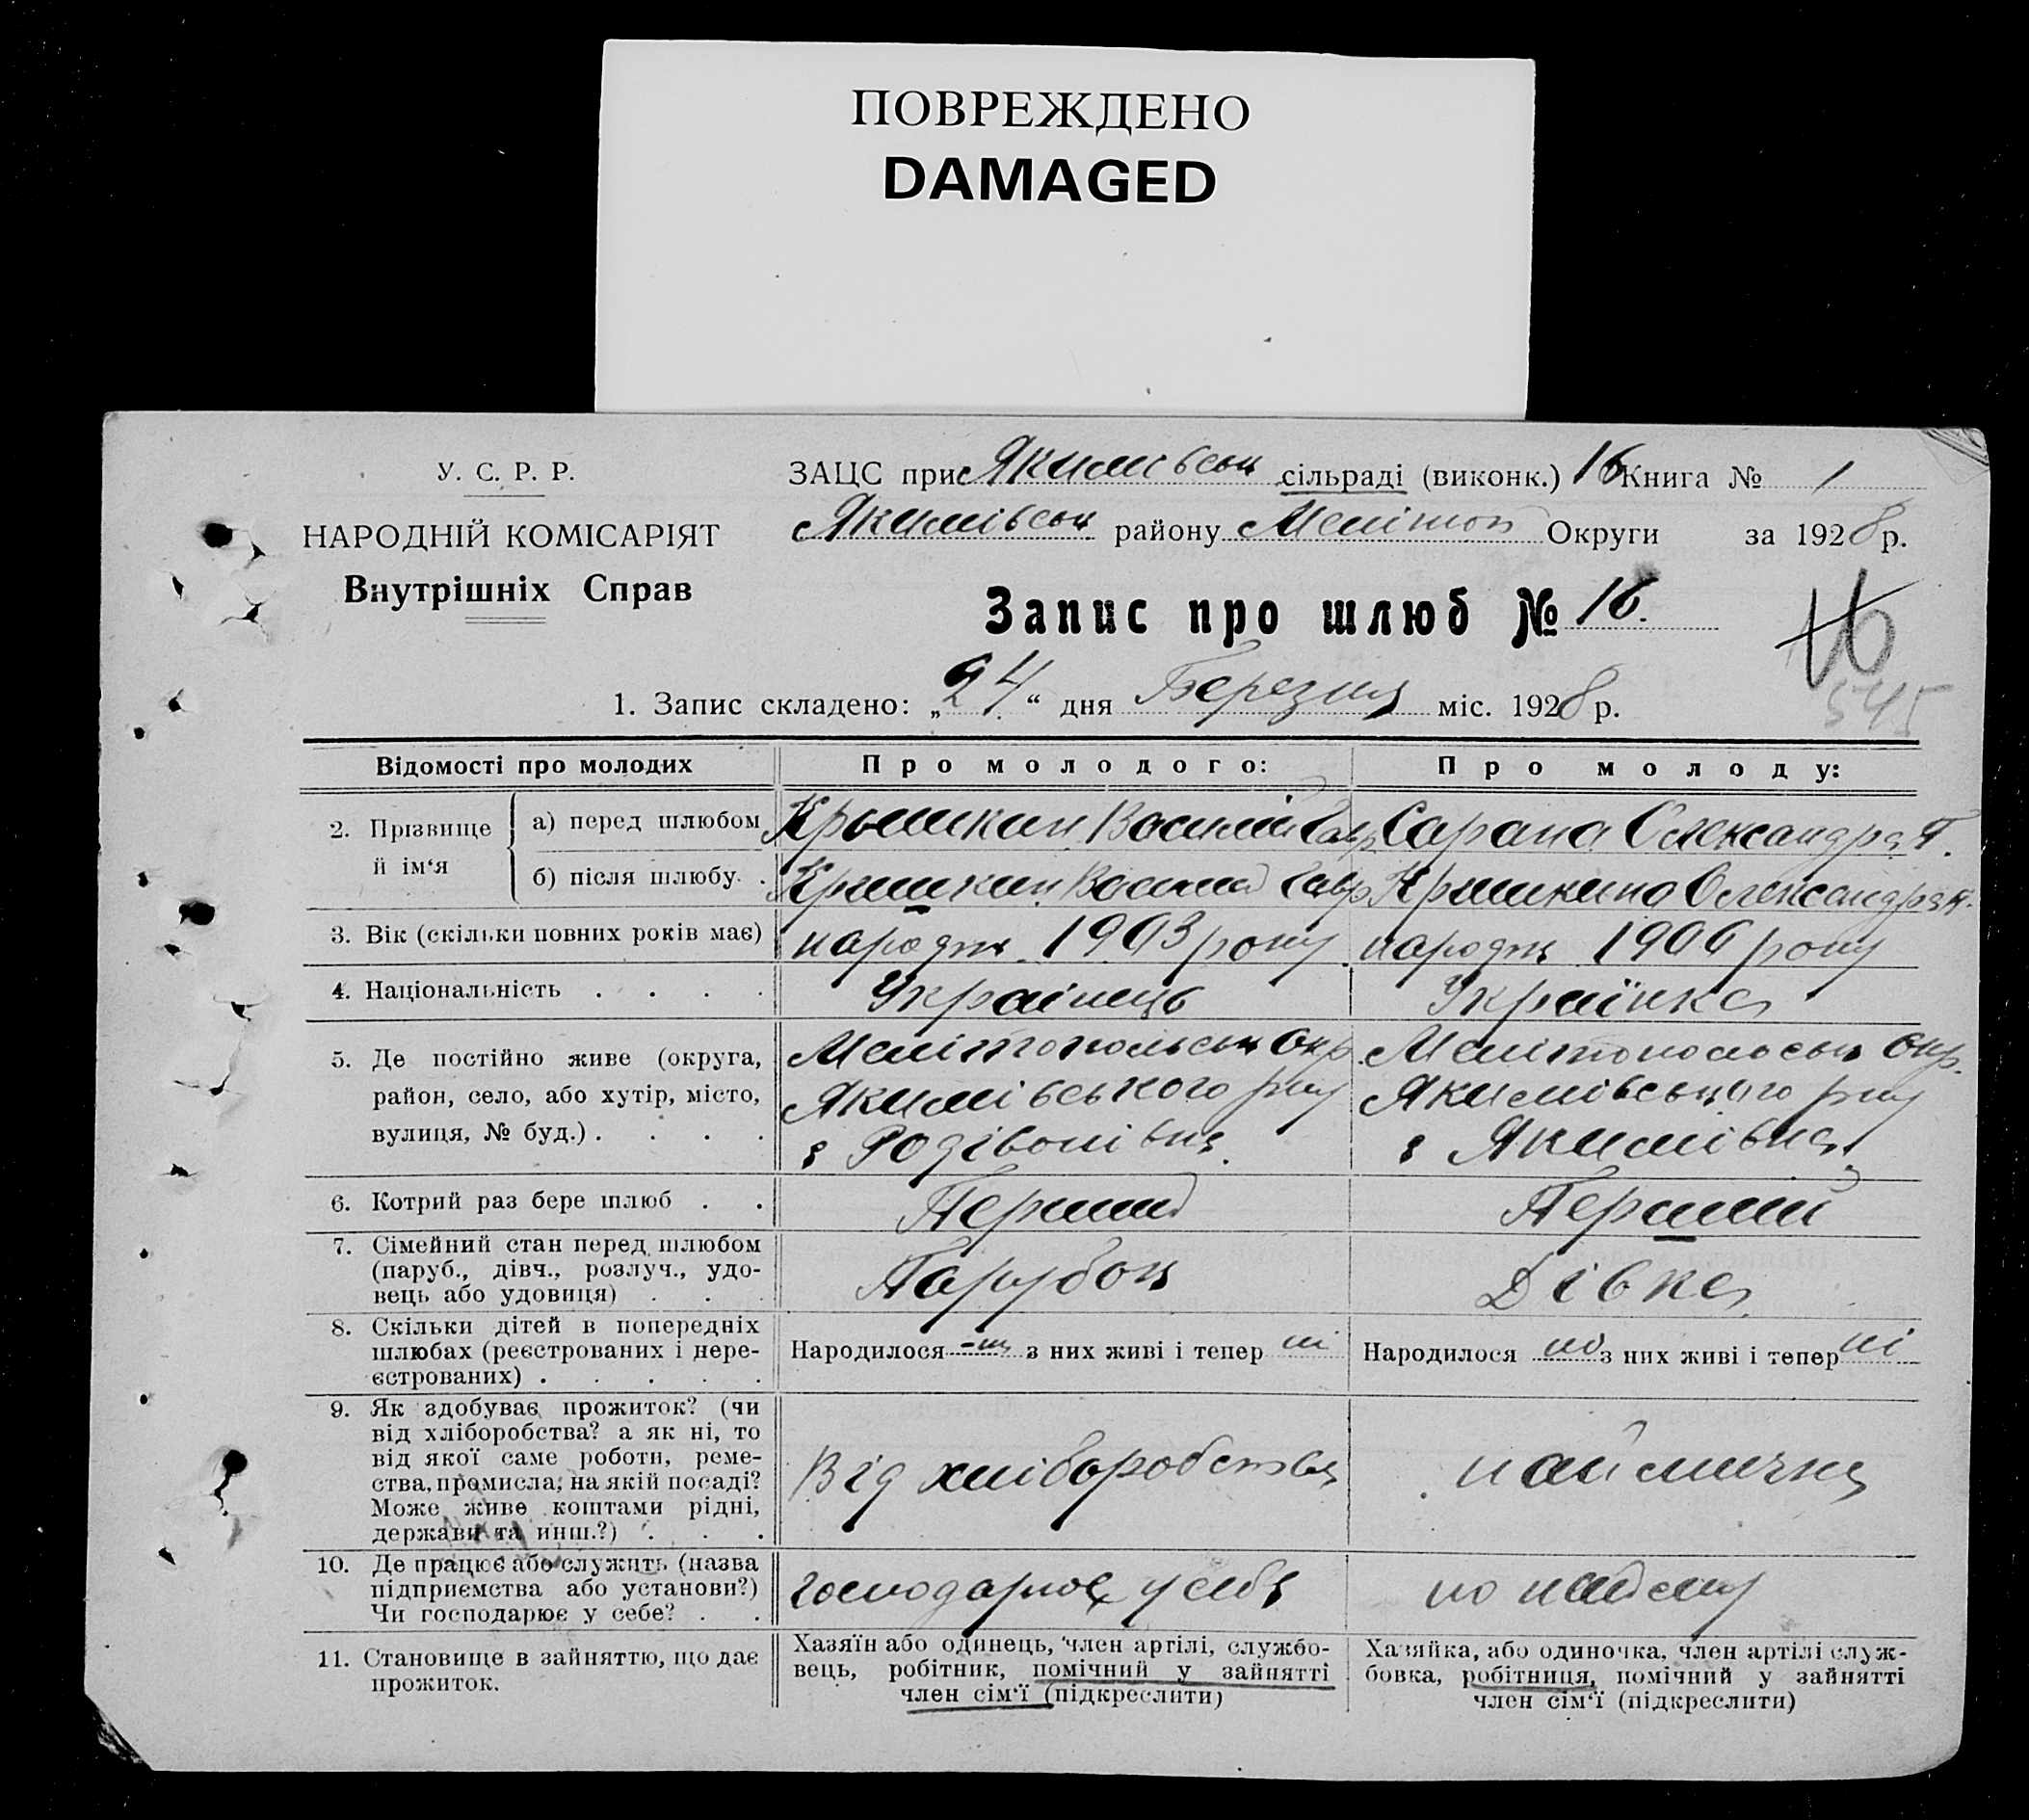 ПОВРЕЖДЕНО
DAMAGED
У. С. Р. Р.
НАРОДНІЙ КОМІСАРІЯТ
Внутрішніх Справ
ЗАЦС при Якимівськ сільраді (виконк.) 16 Книга № 1
Якимівськ району Меліто́п Округи за 1928 р.
Запис про шлюб № 16.
16
545
1. Запис складено: „24“ дня Березня міс. 1928 р.
Відомості про молодих
Про молодого:
Про молоду:
2. Прізвище й ім‘я
а) перед шлюбом
Крышкин Василій Гавр
Сарана Олександра Г.
б) після шлюбу .
Кришкин Василий Гавр
Кришкина Олександра
3. Вік (скільки повних років має)
народж 1903 року
народж 1906 року
4. Національність . . . .
Українець
Українка
5. Де постійно живе (округа,
район, село, або хутір, місто,
вулиця, № буд.) . . . .
Мелітопольськ Окр.
Якимівського р-ну
с Родівонівка
Мелітопольськ Окр.
Якимівського р-ну
с Якимівка
6. Котрий раз бере шлюб . .
Перший
Перший
7. Сімейний стан перед шлюбом
(паруб., дівч., розлуч., удо-
вець або удовиця) . .
Парубок
Дівка
8. Скільки дітей в попередніх
шлюбах (реєстрованих і нере-
єстрованих) . . . . .
Народилося з них живі і тепер ні
Народилося з них живі і тепер ні
9. Як здобуває прожиток? (чи
від хліборобства? а як ні, то
від якої саме роботи, реме-
ства, промисла; на якій посаді?
Може живе коштами рідні,
держави та инш.?) . . .
Від хліборобства
наймичка
10. Де працює або служить (назва
підприємства або установи?)
Чи господарює у себе? . .
господарює у себя
по найому
11. Становище в зайняттю, що дає
прожиток.
Хазяїн або одинець, член артілі, службо-
вець, робітник, помічний у зайнятті
член сім‘ї (підкреслити)
Хазяйка, або одиночка, член артілі служ-
бовка, робітниця, помічний у зайнятті
член сім‘ї (підкреслити)